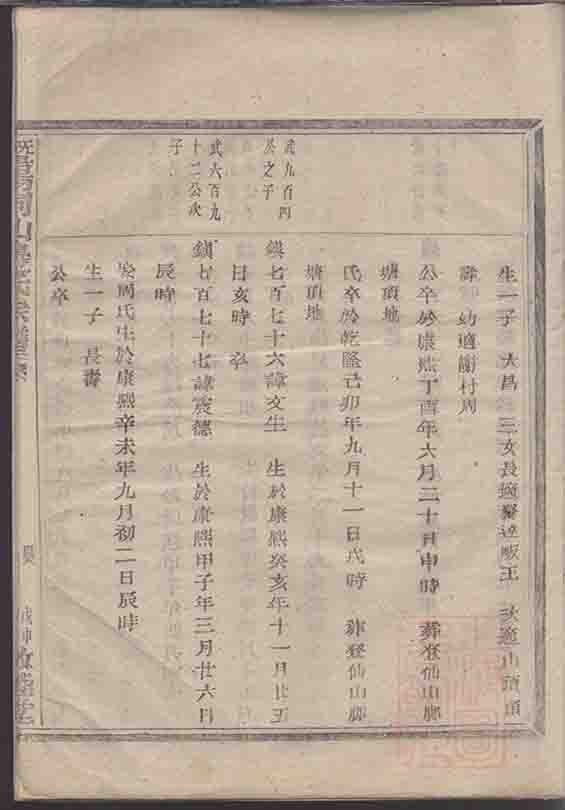 生一子 大昌 三女長適 王 次適山頭
幼適謝村周
公卒於康熙丁酉年六月二十日申時 葬登仙山腳
塘頂地
氏卒於乾隆己卯年九月十一日戌時 葬登仙山腳
塘頂地
武九百四
於之子
鎮七百七十六諱文生 生於康熙癸亥年十一月廿五
日亥時 卒
武六百九
十二公次
子
鎮七百七十七諱宸德 生於康熙甲子年三月廿六日
辰時
娶周氏生於康熙辛未年九月初二日辰時
生一子 長壽
公卒
山 宗譜